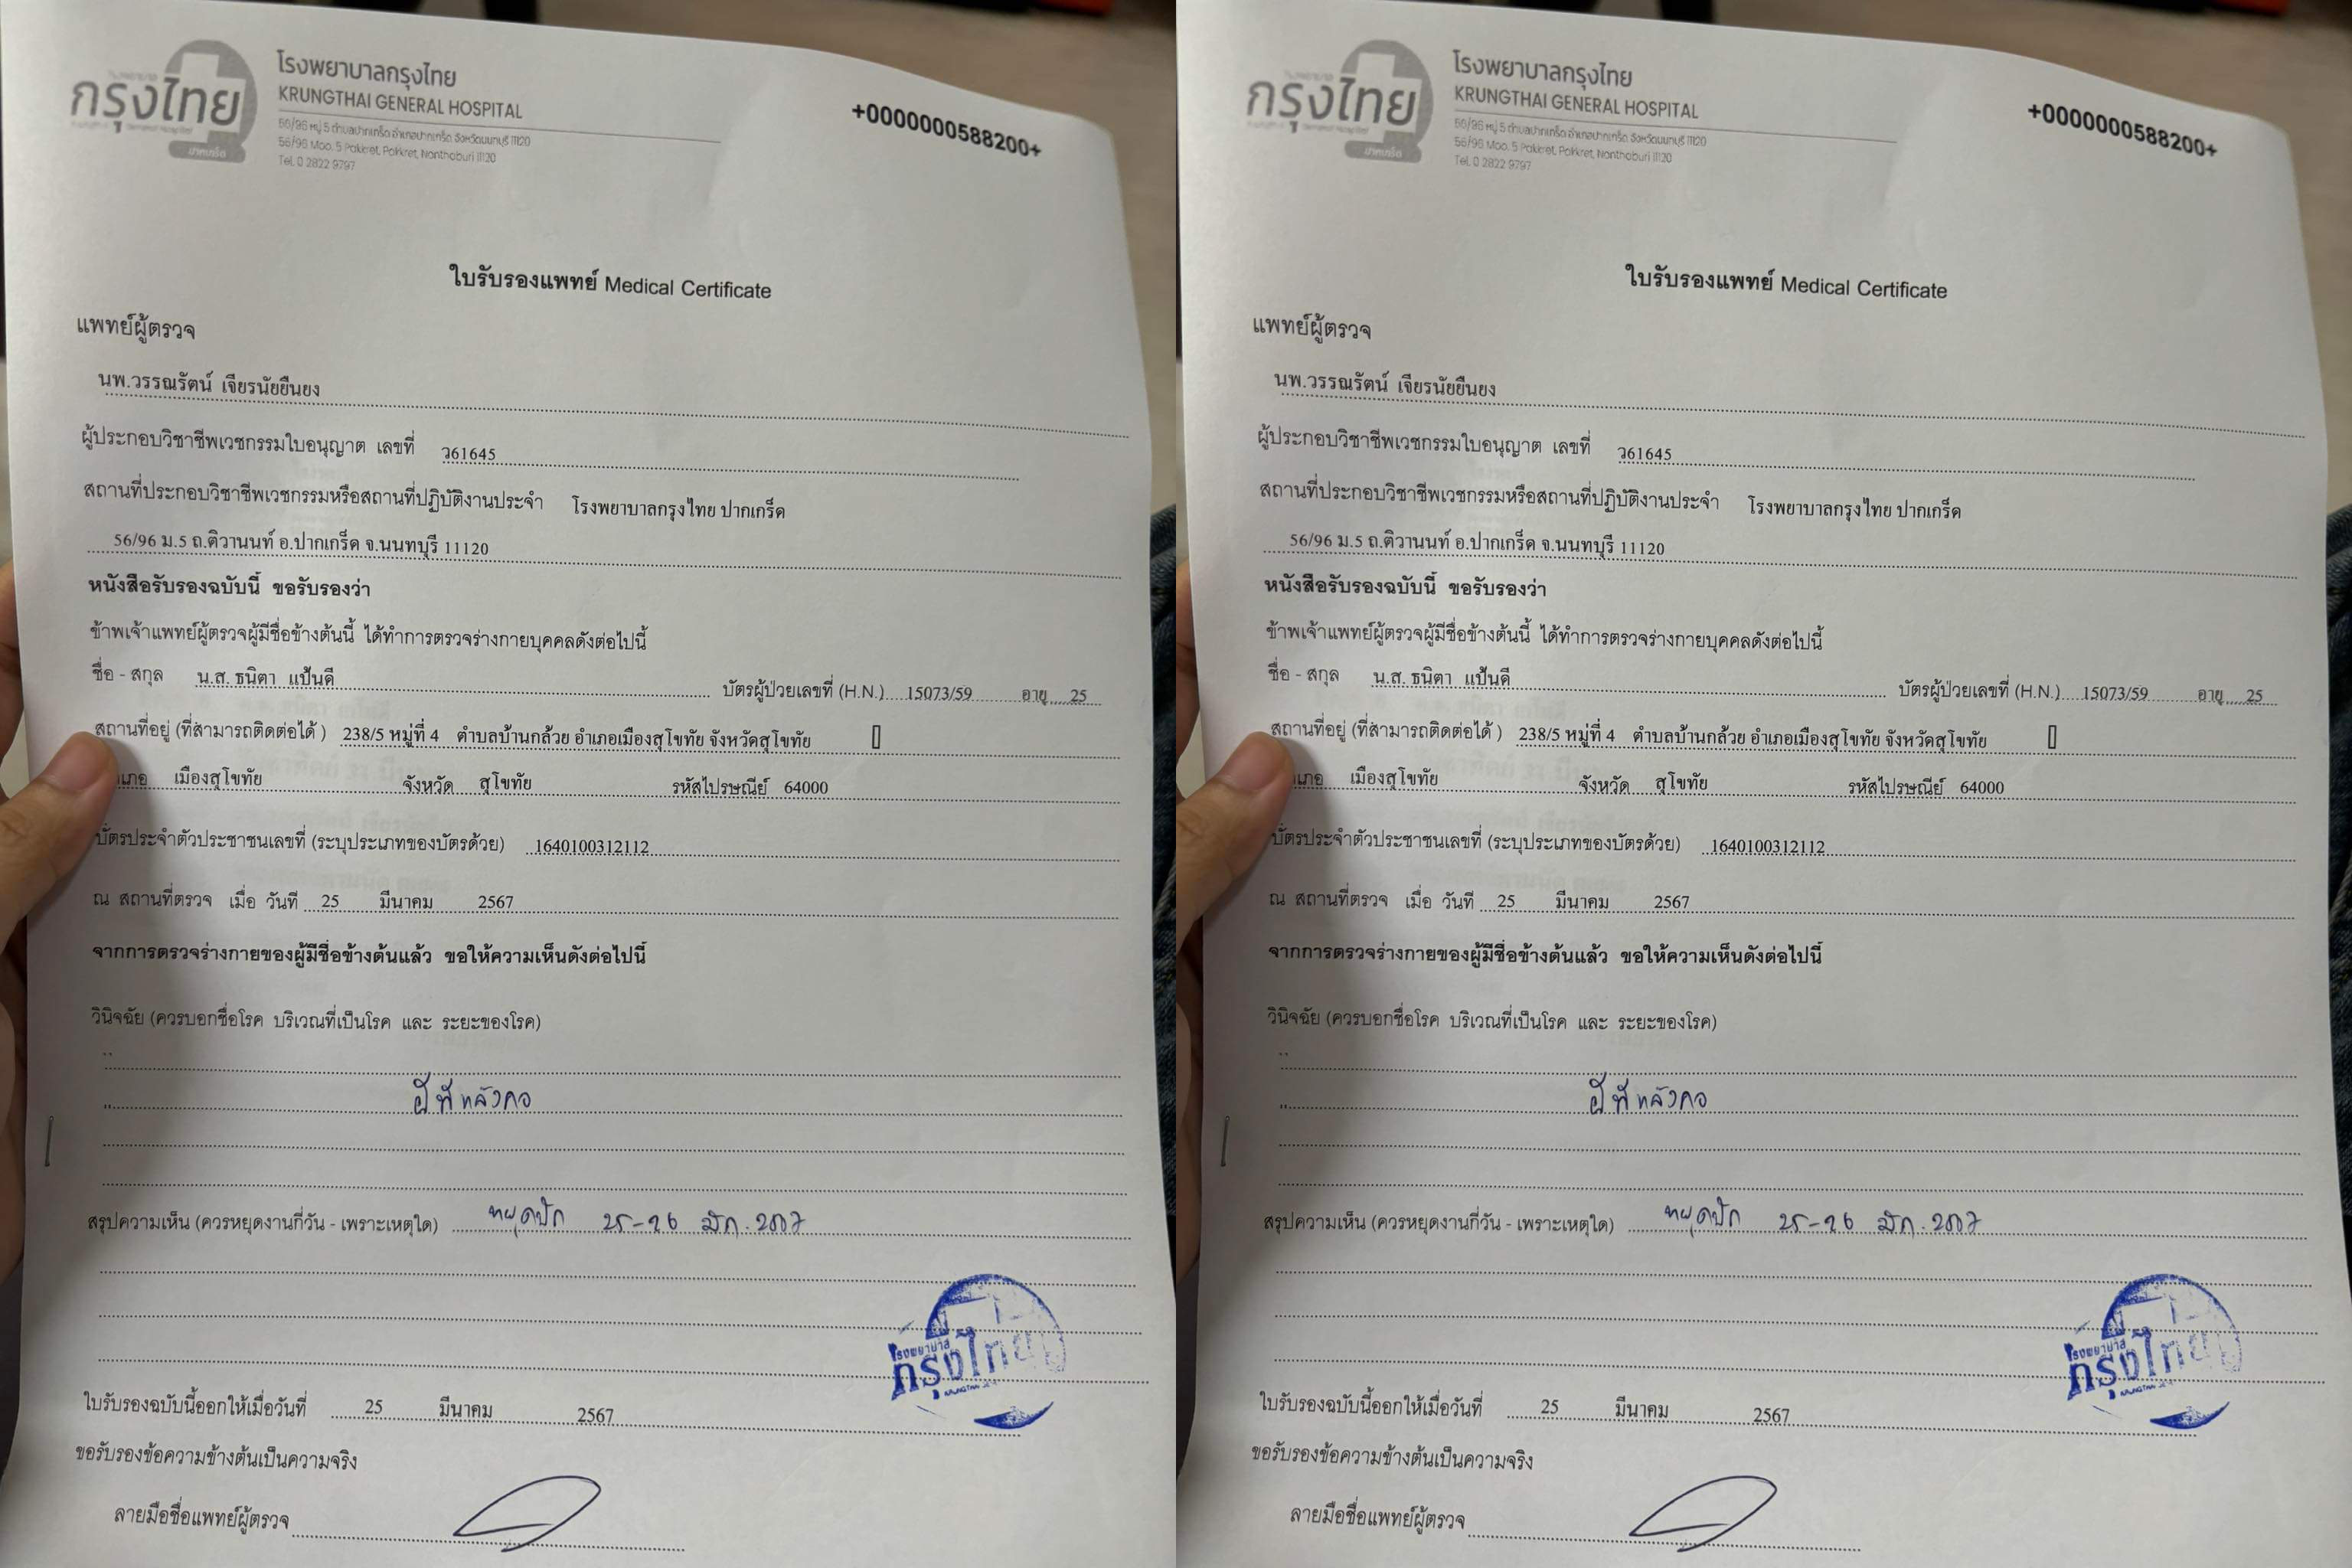 กรุงไทย
ปากเกร็ด
โรงพยาบาลกรุงไทย
KRUNGTHAI GENERAL HOSPITAL
56/96 หมู่ 5 ตำบลปากเกร็ด อำเภอปากเกร็ด จังหวัดนนทบุรี 11120
56/96 Moo. 5 Pakkret, Pakkret, Nonthaburi 11120
Tel. 0 2822 9797
+0000000588200+
ใบรับรองแพทย์ Medical Certificate
แพทย์ผู้ตรวจ
นพ.วรรณรัตน์ เจียรนัยยืนยง
ผู้ประกอบวิชาชีพเวชกรรมใบอนุญาต เลขที่ ว61645
สถานที่ประกอบวิชาชีพเวชกรรมหรือสถานที่ปฏิบัติงานประจำ โรงพยาบาลกรุงไทย ปากเกร็ด
56/96 ม.5 ถ.ติวานนท์ อ.ปากเกร็ด จ.นนทบุรี 11120
หนังสือรับรองฉบับนี้ ขอรับรองว่า
ข้าพเจ้าแพทย์ผู้ตรวจผู้มีชื่อข้างต้นนี้ ได้ทำการตรวจร่างกายบุคคลดังต่อไปนี้
ชื่อ - สกุล น.ส. ธนิตา แป้นดี บัตรผู้ป่วยเลขที่ (H.N.) 15073/59 อายุ 25
สถานที่อยู่ (ที่สามารถติดต่อได้ ) 238/5 หมู่ที่ 4 ตำบลบ้านกล้วย อำเภอเมืองสุโขทัย จังหวัดสุโขทัย
เภอ เมืองสุโขทัย จังหวัด สุโขทัย รหัสไปรษณีย์ 64000
บัตรประจำตัวประชาชนเลขที่ (ระบุประเภทของบัตรด้วย) 1640100312112
ณ สถานที่ตรวจ เมื่อ วันที่ 25 มีนาคม 2567
จากการตรวจร่างกายของผู้มีชื่อข้างต้นแล้ว ขอให้ความเห็นดังต่อไปนี้
วินิจฉัย (ควรบอกชื่อโรค บริเวณที่เป็นโรค และ ระยะของโรค)
ฝีที่หลังคอ
สรุปความเห็น (ควรหยุดงานกี่วัน - เพราะเหตุใด) หยุดพัก 25-26 มีค. 2567
โรงพยาบาล
กรุงไทย
ใบรับรองฉบับนี้ออกให้เมื่อวันที่ 25 มีนาคม 2567
ขอรับรองข้อความข้างต้นเป็นความจริง
ลายมือชื่อแพทย์ผู้ตรวจ
กรุงไทย
ปากเกร็ด
โรงพยาบาลกรุงไทย
KRUNGTHAI GENERAL HOSPITAL
56/96 หมู่ 5 ตำบลปากเกร็ด อำเภอปากเกร็ด จังหวัดนนทบุรี 11120
56/96 Moo. 5 Pakkret, Pakkret, Nonthaburi 11120
Tel. 0 2822 9797
+0000000588200+
ใบรับรองแพทย์ Medical Certificate
แพทย์ผู้ตรวจ
นพ.วรรณรัตน์ เจียรนัยยืนยง
ผู้ประกอบวิชาชีพเวชกรรมใบอนุญาต เลขที่ ว61645
สถานที่ประกอบวิชาชีพเวชกรรมหรือสถานที่ปฏิบัติงานประจำ โรงพยาบาลกรุงไทย ปากเกร็ด
56/96 ม.5 ถ.ติวานนท์ อ.ปากเกร็ด จ.นนทบุรี 11120
หนังสือรับรองฉบับนี้ ขอรับรองว่า
ข้าพเจ้าแพทย์ผู้ตรวจผู้มีชื่อข้างต้นนี้ ได้ทำการตรวจร่างกายบุคคลดังต่อไปนี้
ชื่อ - สกุล น.ส. ธนิตา แป้นดี บัตรผู้ป่วยเลขที่ (H.N.) 15073/59 อายุ 25
สถานที่อยู่ (ที่สามารถติดต่อได้ ) 238/5 หมู่ที่ 4 ตำบลบ้านกล้วย อำเภอเมืองสุโขทัย จังหวัดสุโขทัย
เภอ เมืองสุโขทัย จังหวัด สุโขทัย รหัสไปรษณีย์ 64000
บัตรประจำตัวประชาชนเลขที่ (ระบุประเภทของบัตรด้วย) 1640100312112
ณ สถานที่ตรวจ เมื่อ วันที่ 25 มีนาคม 2567
จากการตรวจร่างกายของผู้มีชื่อข้างต้นแล้ว ขอให้ความเห็นดังต่อไปนี้
วินิจฉัย (ควรบอกชื่อโรค บริเวณที่เป็นโรค และ ระยะของโรค)
ฝีที่หลังคอ
สรุปความเห็น (ควรหยุดงานกี่วัน - เพราะเหตุใด) หยุดพัก 25-26 มีค. 2567
โรงพยาบาล
กรุงไทย
ใบรับรองฉบับนี้ออกให้เมื่อวันที่ 25 มีนาคม 2567
ขอรับรองข้อความข้างต้นเป็นความจริง
ลายมือชื่อแพทย์ผู้ตรวจ